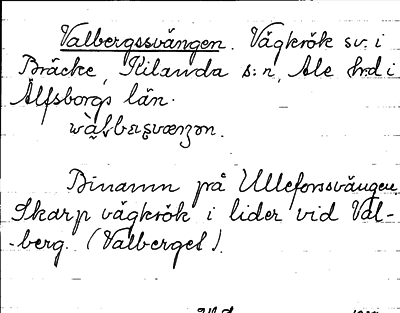 Valbergssvängen. Vägkrök sv. i
Bräcke, Kilanda s:n, Ale hrd i
Älfsborgs län.
Binamn på Ulleforssvängen
Skarp vägkrök i lider vid Val-
-berg. (Valberget).